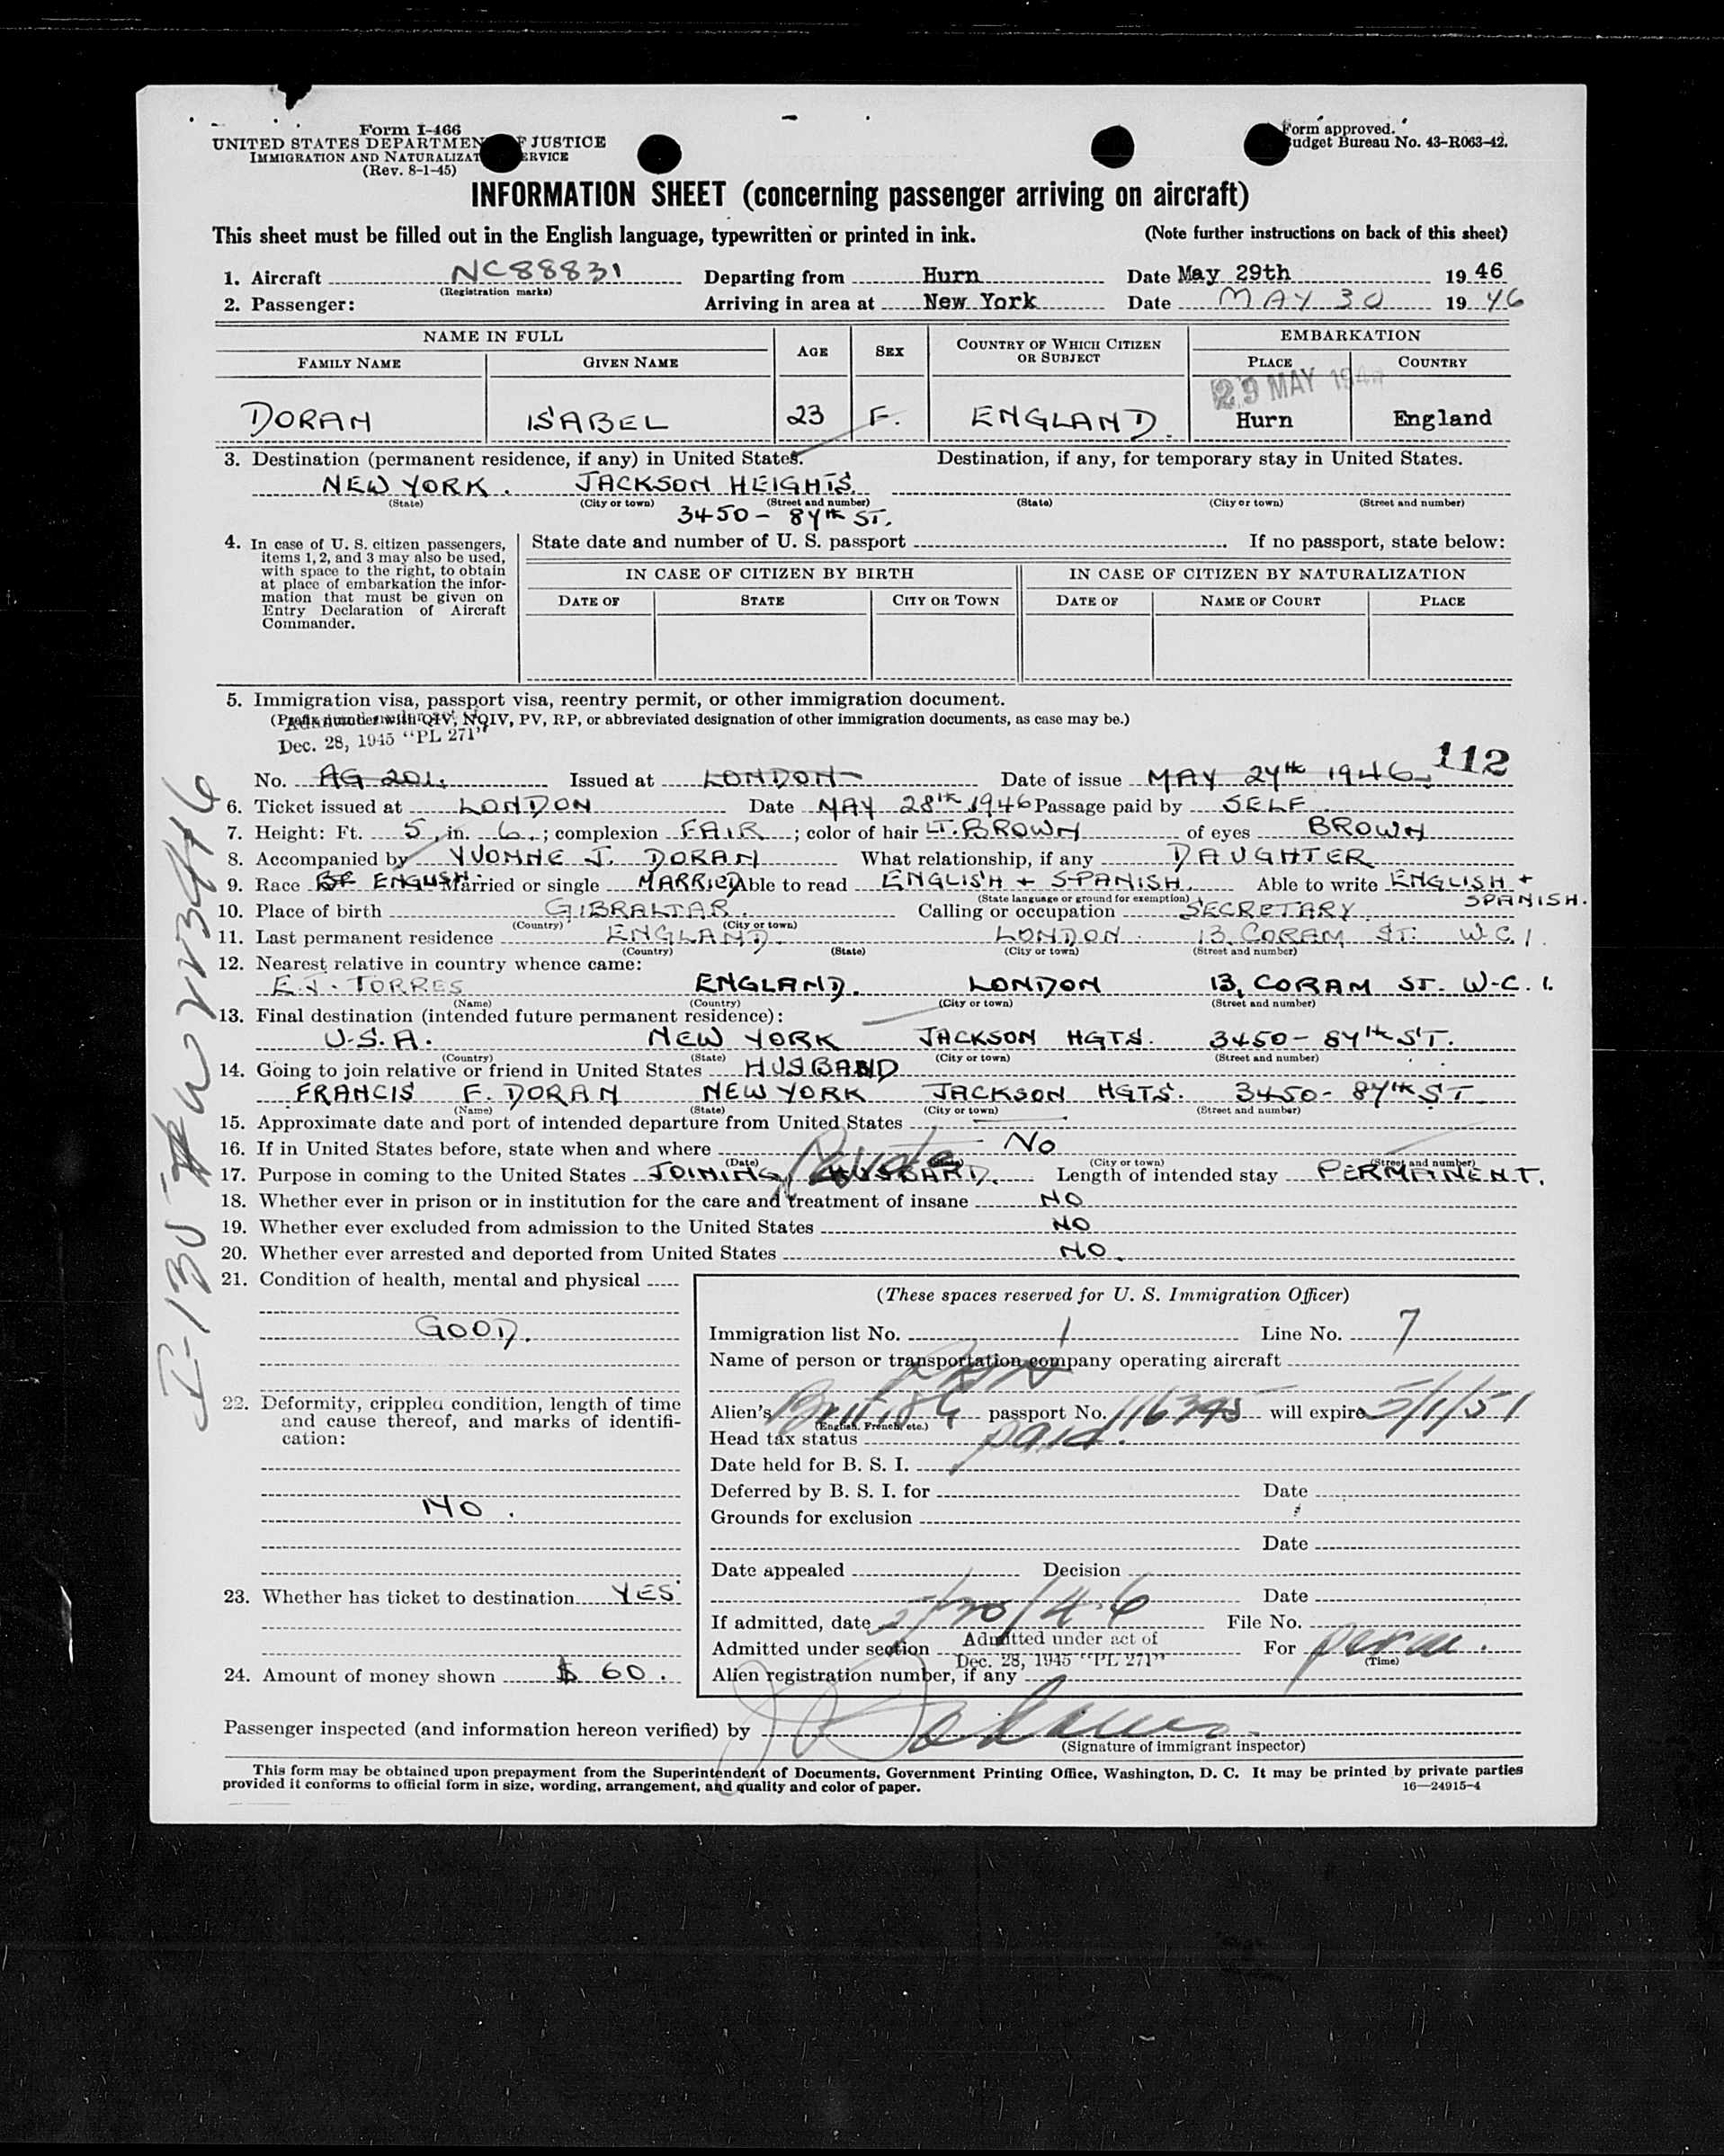 Form I-466
UNITED STATES DEPARTMEN F JUSTICE
IMMIGRATION AND NATURALIZAT ERVICE
(Rev. 8-1-45)
Form approved.
udget Bureau No. 43-R063-42.
INFORMATION SHEET (concerning passenger arriving on aircraft)
This sheet must be filled out in the English language, typewritten or printed in ink. (Note further instructions on back of this sheet)
1. Aircraft NC88831 Departing from Hurn Date May 29th 1946
(Registration marks)
2. Passenger: Arriving in area at New York Date MAY 30 1946
NAME IN FULL AGE SEX COUNTRY OF WHICH CITIZEN OR SUBJECT EMBARKATION
FAMILY NAME GIVEN NAME PLACE COUNTRY
29 MAY 194
DORAN ISABEL 23 F. ENGLAND. Hurn England
3. Destination (permanent residence, if any) in United States. Destination, if any, for temporary stay in United States.
NEW YORK. JACKSON HEIGHTS.
(State) (City or town) (Street and number) (State) (City or town) (Street and number)
3450 - 84th ST.
4. In case of U. S. citizen passengers, items 1, 2, and 3 may also be used, with space to the right, to obtain at place of embarkation the information that must be given on Entry Declaration of Aircraft Commander.
State date and number of U. S. passport If no passport, state below:
IN CASE OF CITIZEN BY BIRTH IN CASE OF CITIZEN BY NATURALIZATION
DATE OF STATE CITY OR TOWN DATE OF NAME OF COURT PLACE
5. Immigration visa, passport visa, reentry permit, or other immigration document.
(Prefix number with QIV, NQIV, PV, RP, or abbreviated designation of other immigration documents, as case may be.)
Dec. 28, 1945 "PL 271"
112
No. AG 201. Issued at LONDON Date of issue MAY 24th 1946.
6. Ticket issued at LONDON Date MAY 28th 1946 Passage paid by SELF.
7. Height: Ft. 5, in. 6.; complexion FAIR; color of hair LT. BROWN of eyes BROWN
8. Accompanied by YVONNE J. DORAN What relationship, if any DAUGHTER
9. Race BR ENGLISH. Married or single MARRIED Able to read ENGLISH + SPANISH. Able to write ENGLISH + SPANISH.
(State language or ground for exemption)
10. Place of birth GIBRALTAR. Calling or occupation SECRETARY
(Country) (City or town)
11. Last permanent residence ENGLAND. LONDON. 13, CORAM ST. W.C.1.
(Country) (State) (City or town) (Street and number)
12. Nearest relative in country whence came:
E.J. TORRES ENGLAND. LONDON 13, CORAM ST. W.C.1.
(Name) (Country) (City or town) (Street and number)
13. Final destination (intended future permanent residence):
U.S.A. NEW YORK JACKSON HGTS. 3450 - 84th ST.
(Country) (State) (City or town) (Street and number)
14. Going to join relative or friend in United States HUSBAND
FRANCIS F. DORAN NEW YORK JACKSON HGTS. 3450 - 84th ST.
(Name) (State) (City or town) (Street and number)
15. Approximate date and port of intended departure from United States
16. If in United States before, state when and where No
(Date) (State) (City or town) (Street and number)
17. Purpose in coming to the United States JOINING HUSBAND. Length of intended stay PERMANENT.
18. Whether ever in prison or in institution for the care and treatment of insane NO
19. Whether ever excluded from admission to the United States NO
20. Whether ever arrested and deported from United States NO.
21. Condition of health, mental and physical
GOOD.
22. Deformity, crippled condition, length of time and cause thereof, and marks of identification:
NO.
23. Whether has ticket to destination YES.
24. Amount of money shown $ 60.
(These spaces reserved for U. S. Immigration Officer)
Immigration list No. 1 Line No. 7
Name of person or transportation company operating aircraft
PAA
Alien's British passport No. 116395 will expire 5/1/51
(English, French, etc.)
Head tax status paid.
Date held for B. S. I.
Deferred by B. S. I. for Date
Grounds for exclusion
Date
Date appealed Decision
Date
If admitted, date 5/30/46 File No.
Admitted under section Admitted under act of Dec. 28, 1945 "PL 271" For perm.
(Time)
Alien registration number, if any
Passenger inspected (and information hereon verified) by
(Signature of immigrant inspector)
This form may be obtained upon prepayment from the Superintendent of Documents, Government Printing Office, Washington, D. C. It may be printed by private parties
provided it conforms to official form in size, wording, arrangement, and quality and color of paper. 16—24915-4
I-130